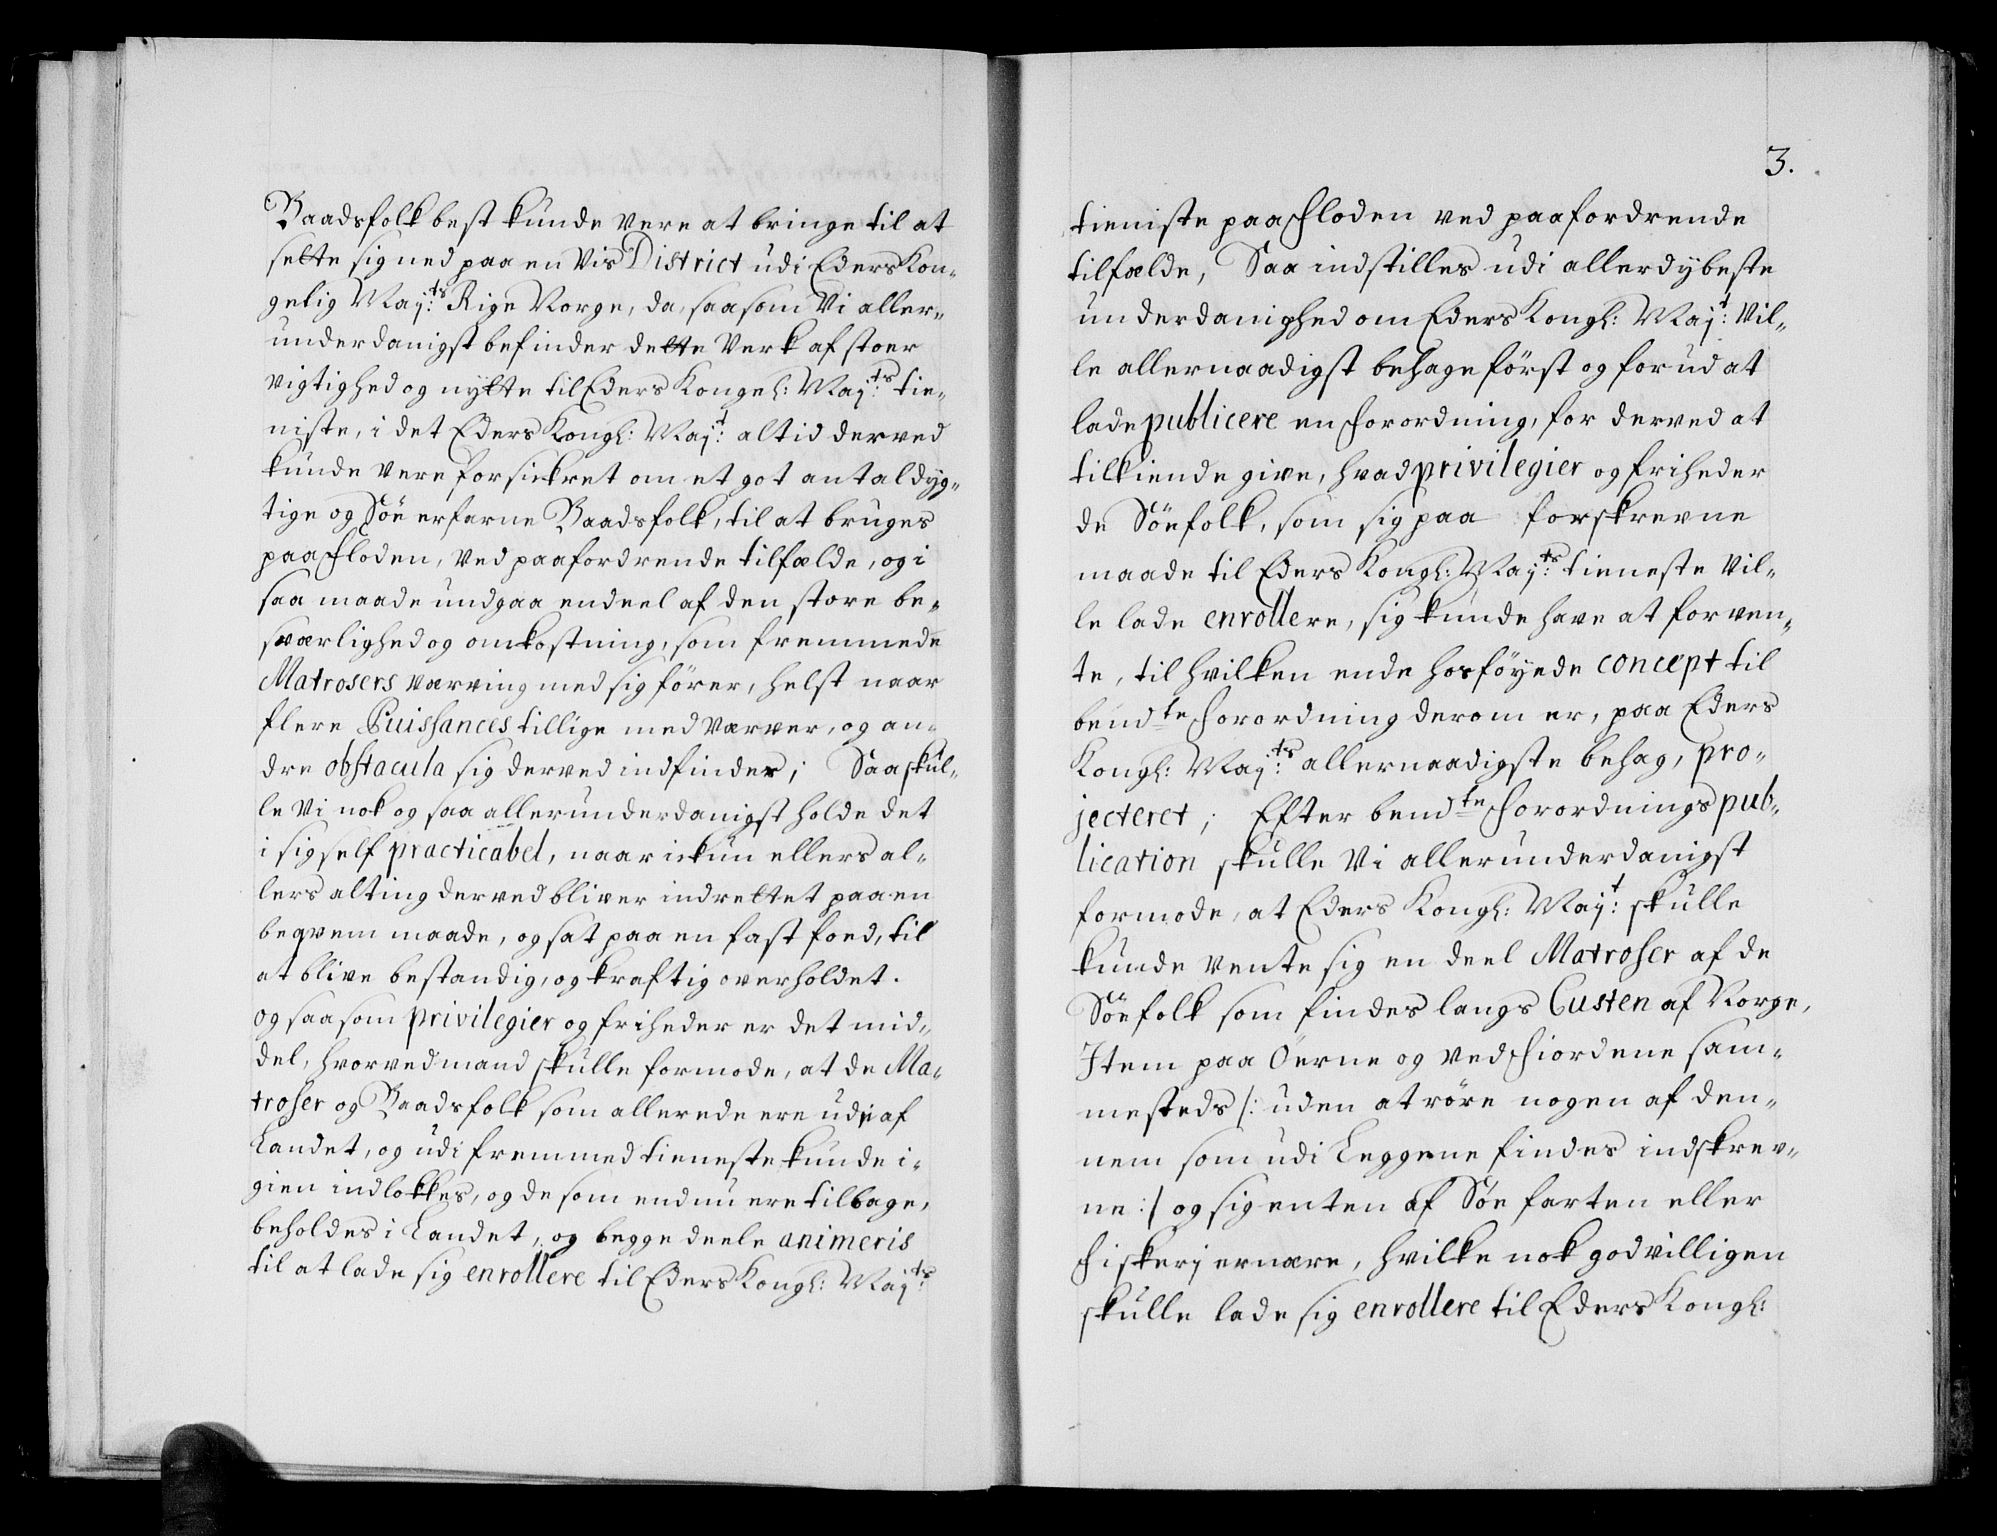 Baadsfolk best kunde vere at bringe til at
sette sig ned paa en vis District udi Eders Kon-
gelig Maij:ts Rige Norge, da, saasom Vi aller-
underdanigst befinder dette Verk af stoer
vigtighed og nytte til Eders Kongel: Maij:ts tie-
niste, i det Eders Kongl: Maij:t altid derved
kunde vere forsickret om et got antal dyg-
tige og Söe erfarne Baadsfolk, til at bruges
paa Floden, ved paafordrende tilfælde, og i
saa maade undgaa endeel af den store be-
sværlighed og omkostning, som fremmede
Matrosers værving med sig fører, helst naar
flere Puissances tillige med værver, og an-
dre obstacula sig derved indfinder; Saa skul-
le Vi nok og saa allerunderdanigst holde det
i sig self practicabel, naar ickun ellers al-
lers alting derved bliver indrettet paa en
beqvem maade, og sat paa en fast foed, til
at blive bestandig, og kraftig overholdet.
og saasom privilegier og friheder er det mid-
del, hvorved mand skulle formode, at de Ma-
troser og Baadsfolk som allerede ere udj af
Landet, og udi fremmed tieneste kunde i-
gien indlokkes, og de som endnu ere tilbage,
beholdes i Landet, og begge deele animeris
til at lade sig enrollere til Eders Kongl: Maij:ts
3.
tieniste paa Floden ved paafordrende
tilfælde, Saa indstilles udi allerdybeste
underdanighed om Eders Kongl: Maij:t vil-
le allernaadigst behage först og forud at
lade publicere en Forordning, for derved at
tilkiende give, hvad privilegier og friheder
de Söefolk, som sig paa forskrevne
maade til Eders Kongl: Maij:ts tieneste vil-
le lade enrollere, sig kunde have at forven-
te, til hvilken ende hosföyede concept til
bemdte Forordning derom er, paa Eders
Kongl: Maij:ts allernaadigste behag, pro-
jecteret; Efter bemdte Forordnings pub-
lication skulle Vi allerunderdanigst
formode, at Eders Kongl: Maij:t skulle
kunde vente sig en deel Matroser af de
Söefolk som findes langs Custen af Norge,
Item paa Öerne og ved Fiordene sam-
mesteds /: uden at röre nogen af den-
nem som udi Leggene findes indskrev-
ne :/ og sig enten af Söe farten eller
Fiskerj ernære, hvilke nok godvilligen
skulle lade sig enrollere til Eders Kongl: